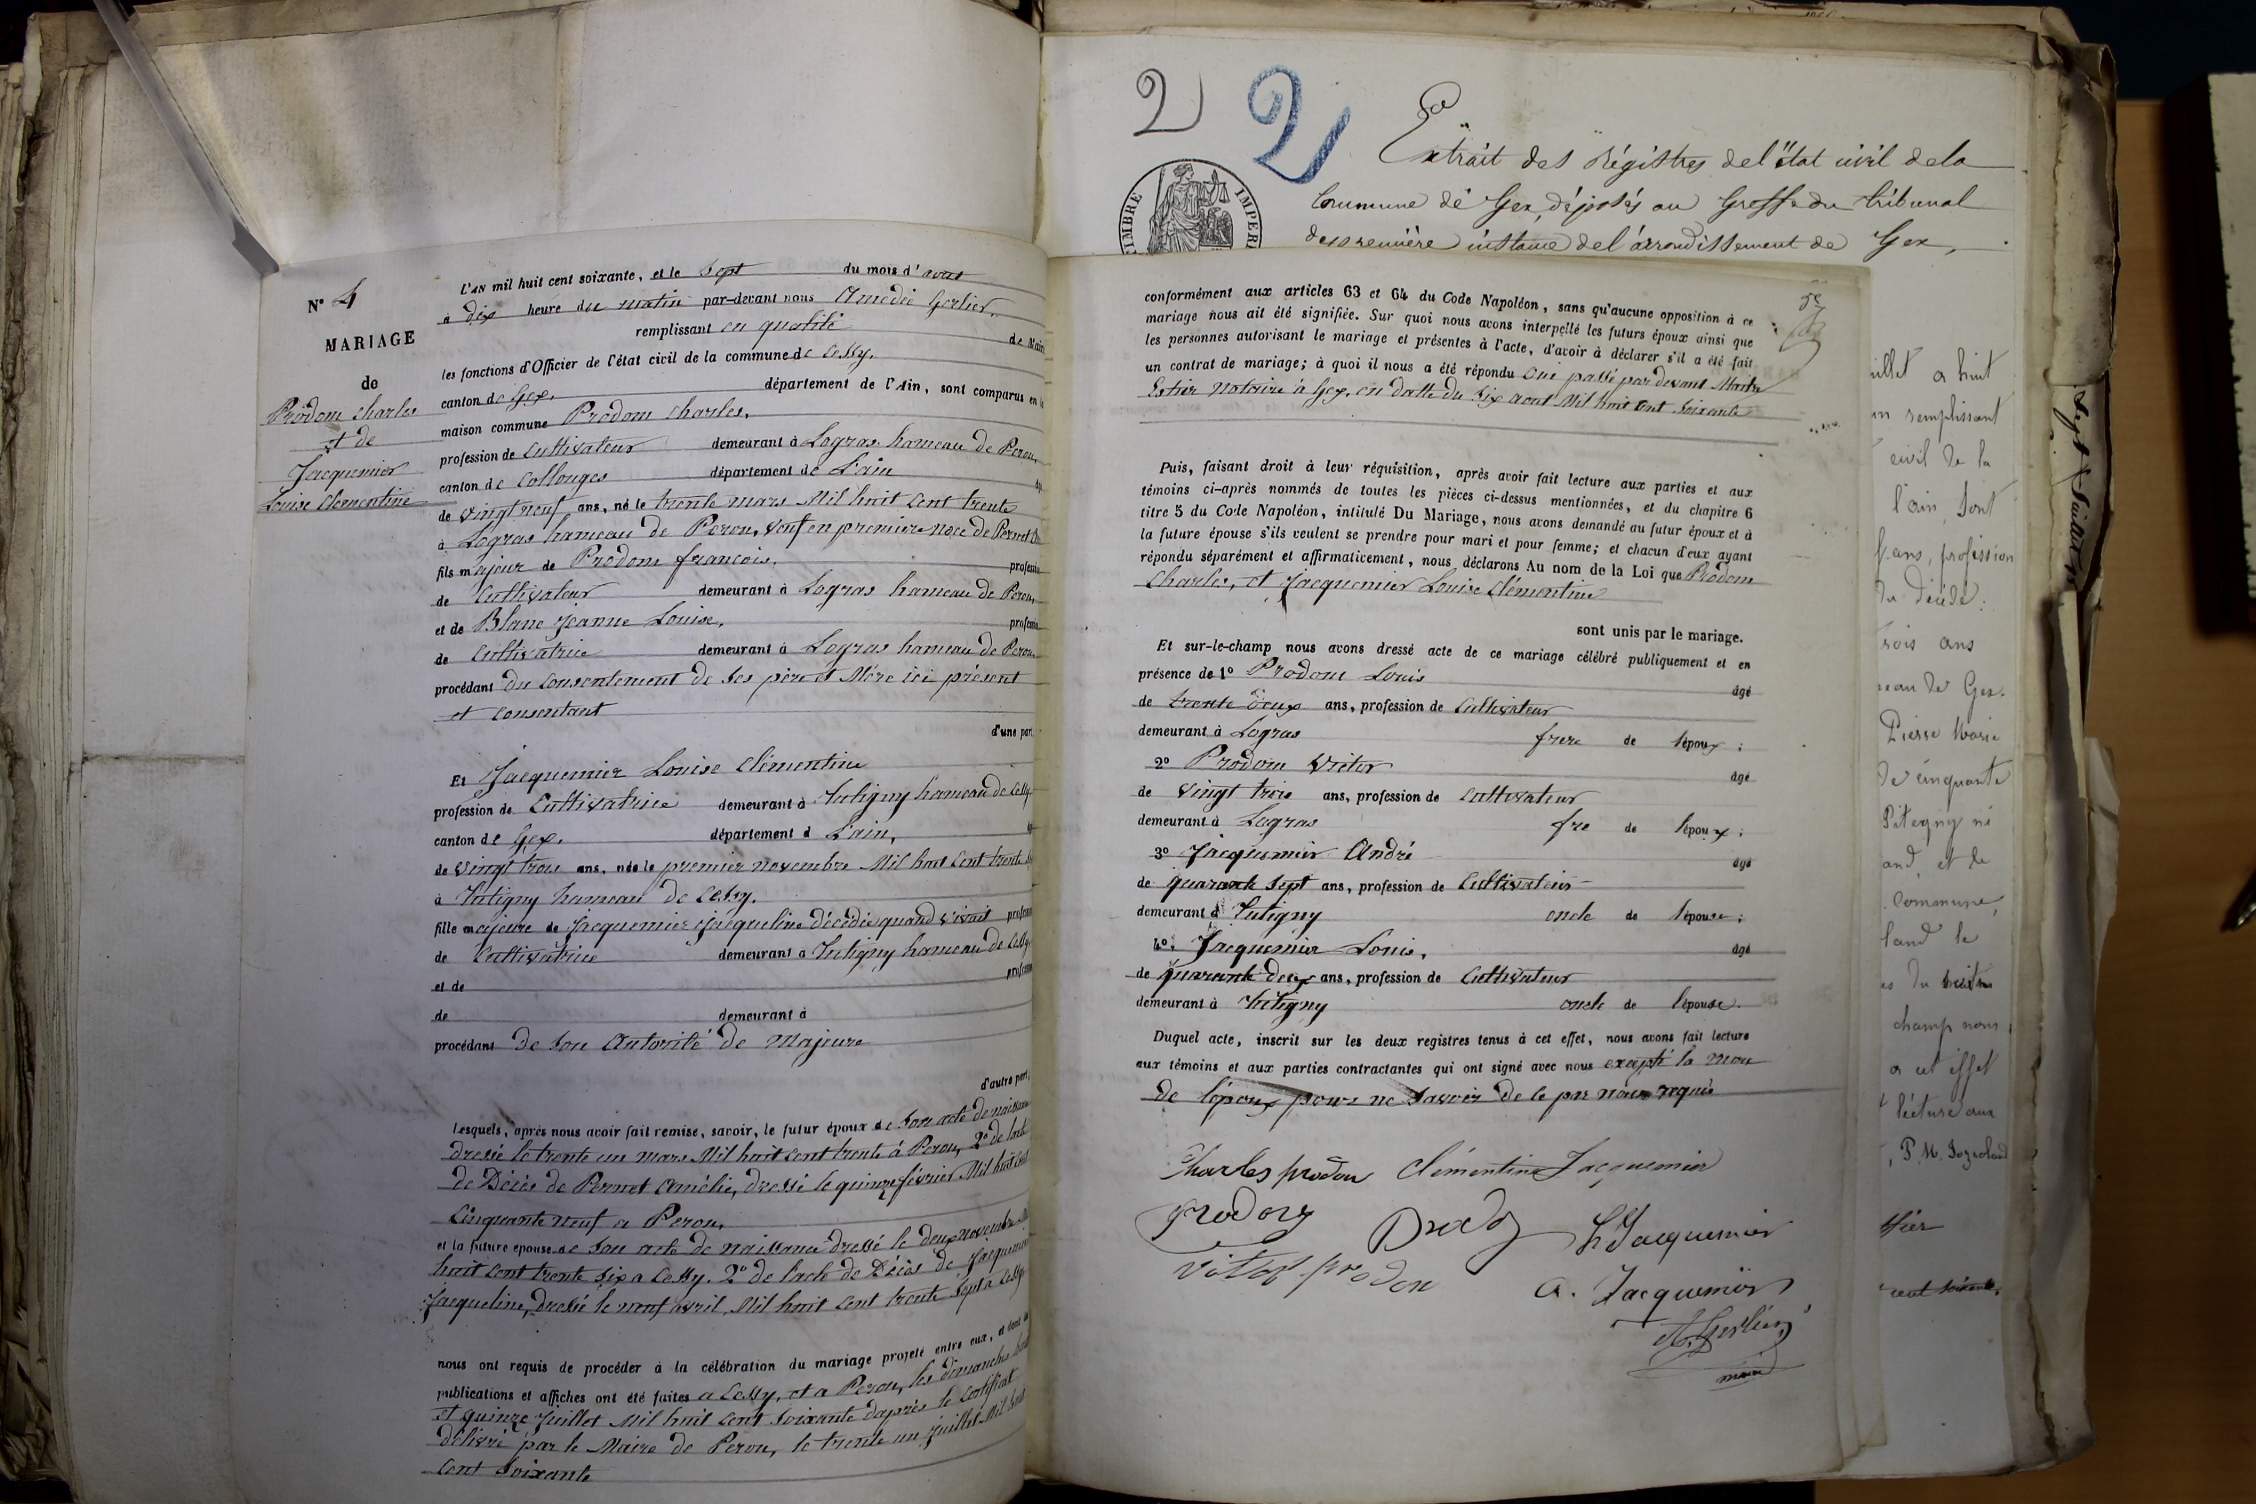 N° 4
MARIAGE
de
Prodom Charles
et de
Jacquemier
Louise Clémentine
L'AN mil huit cent soixante, et le Sept du mois d'aout
à dix heure du matin par-devant nous Amédée Gerlier
remplissant en qualité de Maire
les fonctions d'Officier de l'état civil de la commune de Cessy.
canton de Gex. département de l'Ain, sont comparus en la
maison commune Prodom Charles.
profession de Cultivateur demeurant à Logras hameau de Peron,
canton de Collonges département de L'ain
de vingt neuf ans, né le trente mars Mil huit cent trente
à Logras hameau de Peron, veuf en premiere noce de Pernet
fils majeur de Prodom françois.
de Cultivateur demeurant à Logras hameau de Peron,
et de Blanc Jeanne Louise.
de Cultivatrice demeurant à Logras hameau de Peron
procédant du consentement de ses père et Mère ici présent
et consentant
d'une part.
Et Jacquemier Louise Clémentine
profession de Cultivatrice demeurant à Tutigny hameau de Cessy
canton de Gex. département d L'ain,
de vingt trois ans, née le premier novembre Mil huit cent trente
à Tutigny hameau de Cessy.
fille majeure de Jacquemier Jacqueline décédée quand vivait
de Cultivatrice demeurant à Tutigny hameau de Cessy.
et de
de demeurant à
procédant de son Autorité de Majeure
d'autre part,
Lesquels, après nous avoir fait remise, savoir, le futur époux de son acte de naissance
dressé le trente un mars Mil huit cent trente à Peron, 2° de l'acte
de Décès de Pernet Amélie, dressé le quinze février Mil huit cent
Cinquante neuf a Peron.
et la future épouse de son acte de naissance dressé le deux novembre
huit cent trente six a Cessy. 2° de l'acte de Décès de Jacquemier
Jacqueline, dressé le neuf avril, Mil huit cent trente sept a Cessy
nous ont requis de procéder à la célébration du mariage projeté entre eux, et dont les
publications et affiches ont été faites a Cessy, et a Peron, les dimanches
et quinze Juillet Mil huit cent soixante d'après le Certificat
délivré par le Maire de Peron, le trente un juillet Mil huit
cent soixante
2 2
TIMBRE IMPER
Extrait des Régistres de l'état civil de la
Commune de Gex, déposés au Greffe du tribunal
de première instance de l'arrondissement de Gex,
conformément aux articles 63 et 64 du Code Napoléon, sans qu'aucune opposition à ce
mariage nous ait été signifiée. Sur quoi nous avons interpellé les futurs époux ainsi que
les personnes autorisant le mariage et présentes à l'acte, d'avoir à déclarer s'il a été fait
un contrat de mariage; à quoi il nous a été répondu Oui passé par devant Maitre
notaire à Gex, en datte du six aout Mil huit cent soixante
Puis, faisant droit à leur réquisition, après avoir fait lecture aux parties et aux
témoins ci-après nommés de toutes les pièces ci-dessus mentionnées, et du chapitre 6
titre 5 du Code Napoléon, intitulé Du Mariage, nous avons demandé au futur époux et à
la future épouse s'ils veulent se prendre pour mari et pour femme; et chacun d'eux ayant
répondu séparément et affirmativement, nous déclarons Au nom de la Loi que Prodom
Charles, et Jacquemier Louise Clémentine
sont unis par le mariage.
Et sur-le-champ nous avons dressé acte de ce mariage célébré publiquement et en
présence de 1° Prodom Louis âgé
de trente deux ans, profession de Cultivateur
demeurant à Logras frere de l'époux;
2° Prodom Victor âgé
de vingt trois ans, profession de Cultivateur
demeurant à Logras fre de l'époux;
3° Jacquemier André âgé
de quarante sept ans, profession de Cultivateur
demeurant à Tutigny oncle de l'épouse;
4°. Jacquemier Louis. âgé
de quarante deux ans, profession de Cultivateur
demeurant à Tutigny oncle de l'épouse.
Duquel acte, inscrit sur les deux registres tenus à cet effet, nous avons fait lecture
aux témoins et aux parties contractantes qui ont signé avec nous excepté la mère
de l'époux pour ne savoir de ce par nous requis
Charles prodom Clémentine Jacquemier
prodom Prodom L Jacquemier
victor prodom A. Jacquemier
A. Gerlier
maire
juillet a huit
remplissant
civil de la
l'ain, sont
ans, profession
du décédé:
trois ans
de Gex.
Pierre Marie
de cinquante
and, et de
Commune,
land le
champ nous
a cet effet
lecture aux
cent soixante,